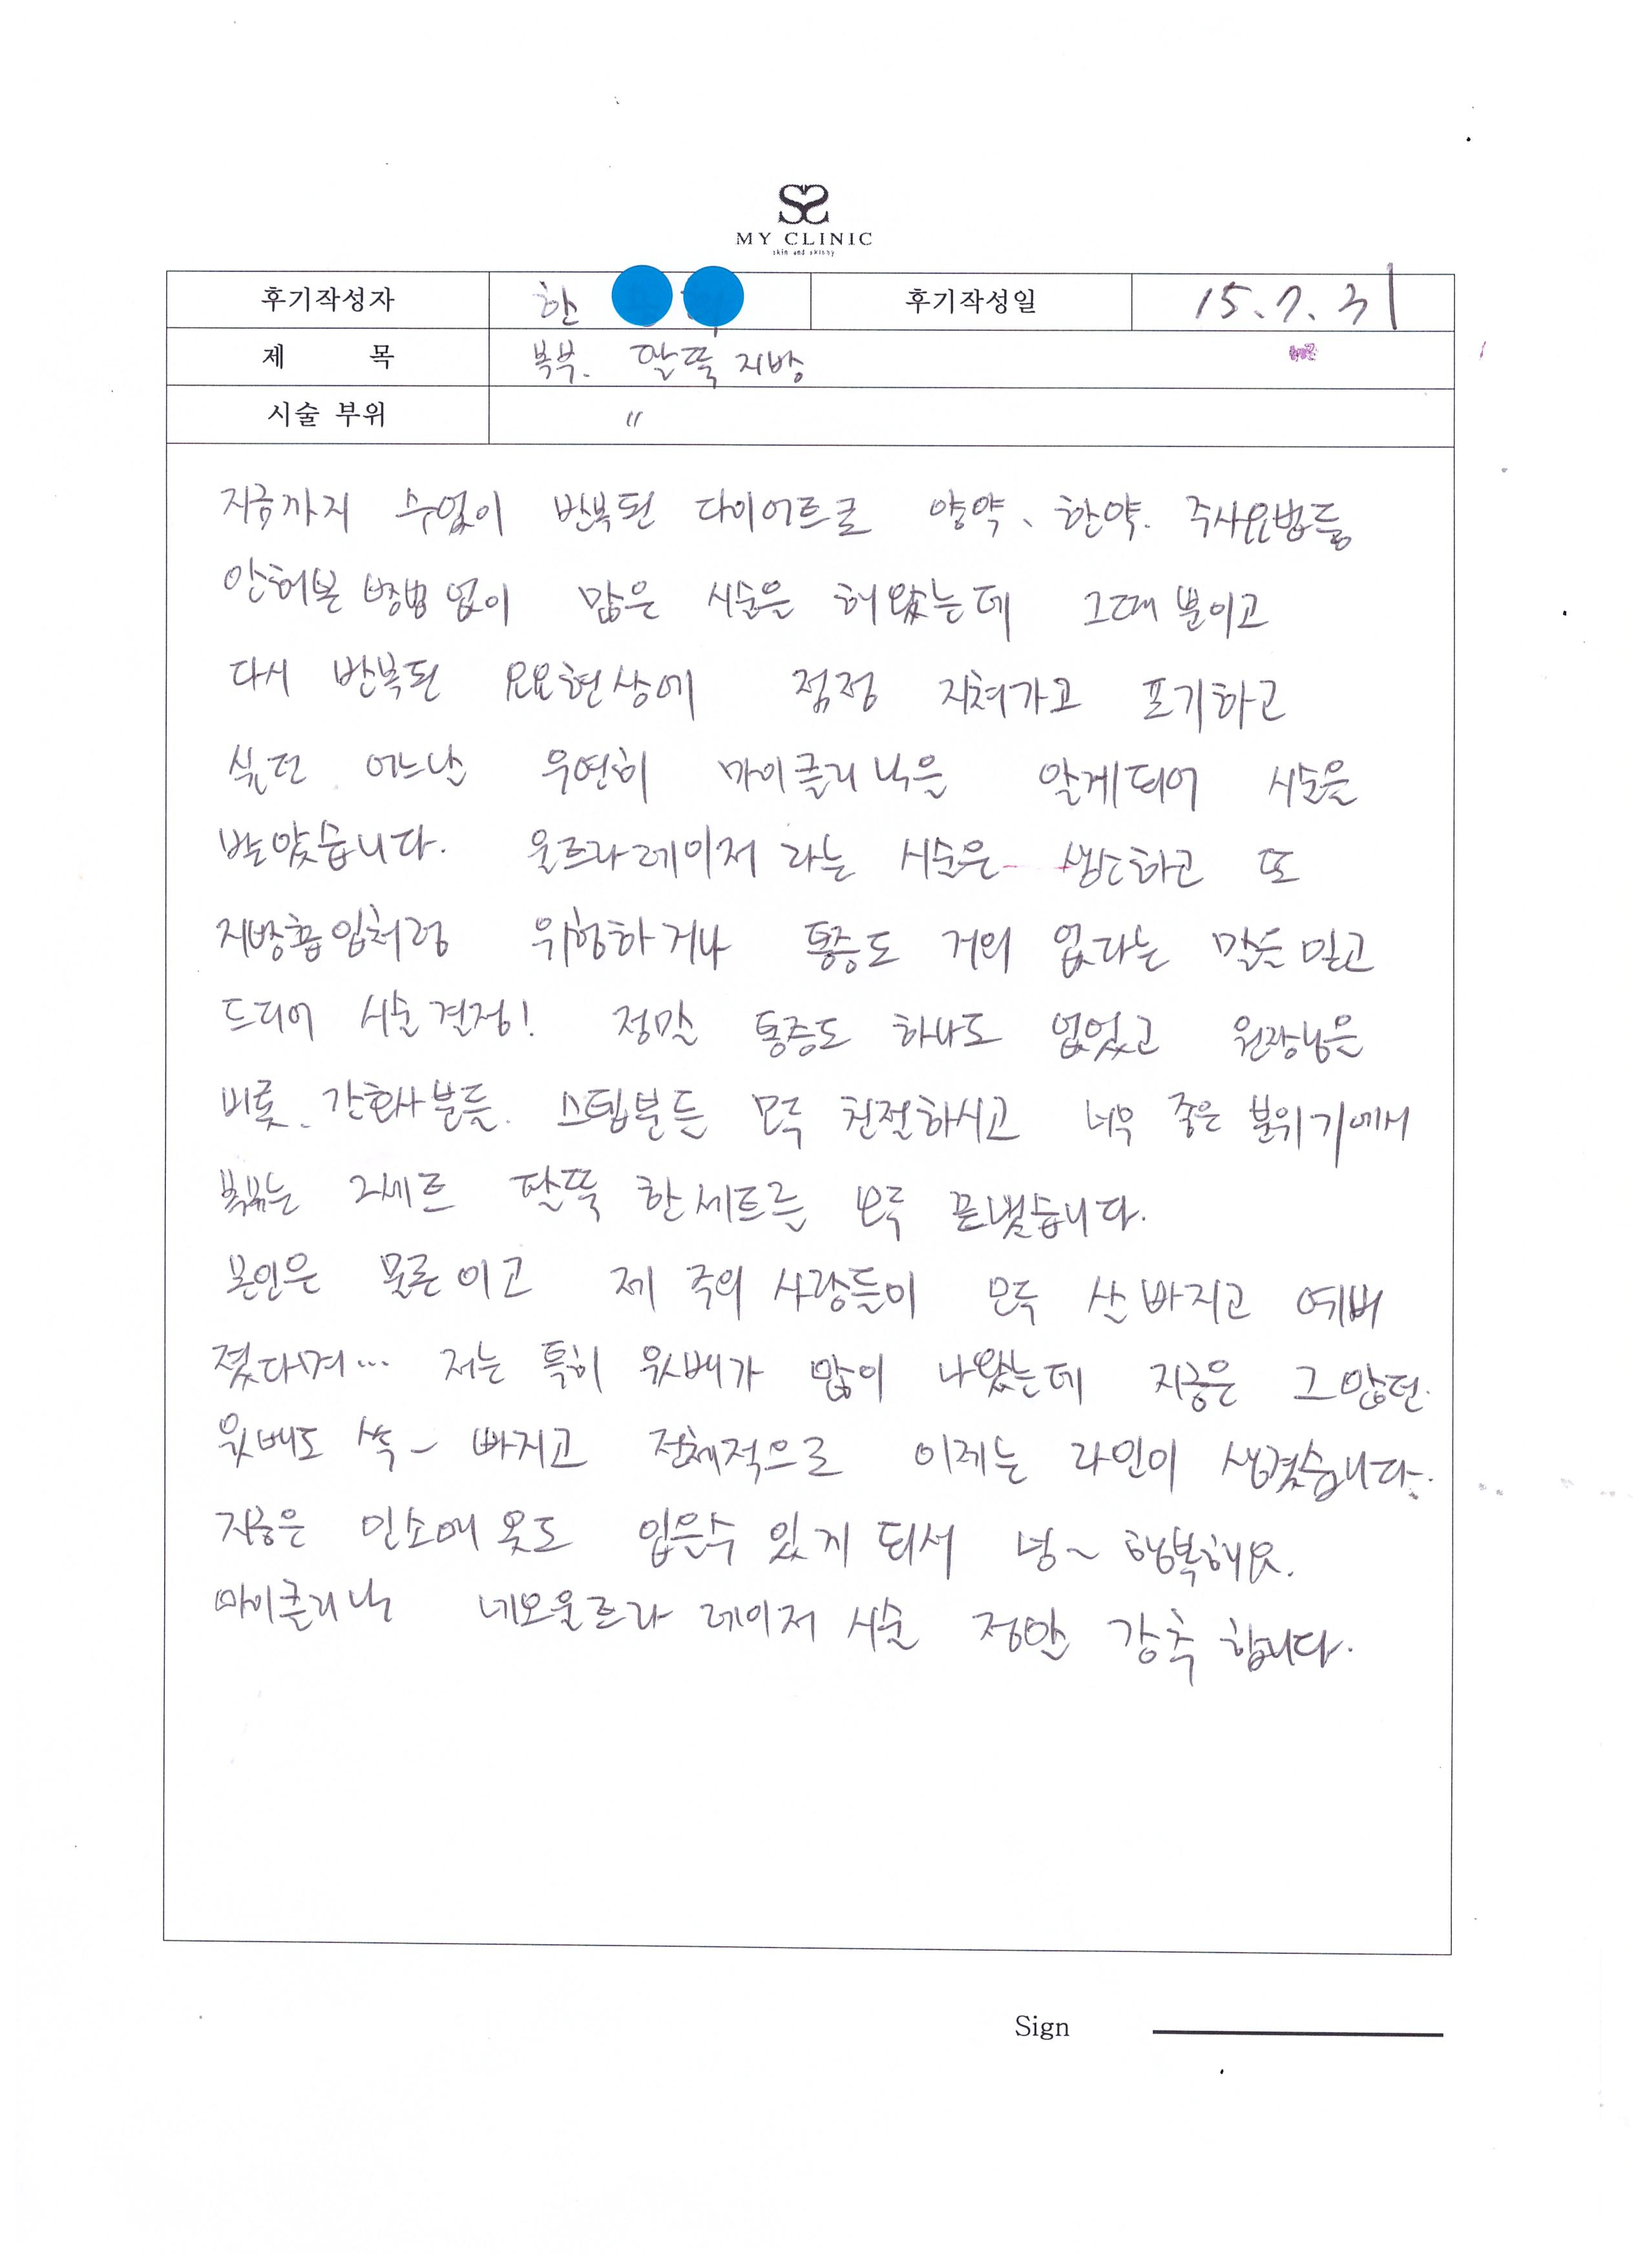 MY CLINIC
skin and skinny
후기작성자 한 후기작성일 15.7.31
제 목 복부. 팔뚝 지방
시술 부위 "
지금까지 수없이 반복된 다이어트로 양약、한약. 주사요법등
안해본 방법 없이 많은 시술을 해왔는데 그때 뿐이고
다시 반복된 요요현상에 점점 지쳐가고 포기하고
싶던 어느날 우연히 마이클리닉을 알게되어 시술을
받았습니다. 울트라레이저 라는 시술은 생소하고 또
지방흡입처럼 위험하거나 통증도 거의 없다는 말을 믿고
드디어 시술결정! 정말 통증도 하나도 없었고 원장님은
비롯、간호사분들. 스텝분들 모두 친절하시고 너무 좋은 분위기에서
복부는 2세트 팔뚝 한세트를 모두 끝냈습니다.
본인은 물론이고 제 주위 사람들이 모두 살 빠지고 예뻐
졌다며... 저는 특히 윗배가 많이 나왔는데 지금은 그 많던
윗배도 쏙~ 빠지고 전체적으로 이제는 라인이 생겼습니다.
지금은 민소매 옷도 입을수 있게 되서 넘~ 행복해요.
마이클리닉 네오울트라 레이저 시술 정말 강추 합니다.
Sign